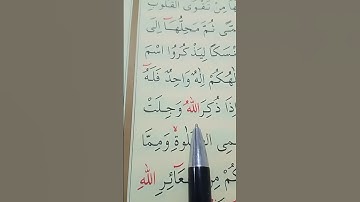 مِنْ تَقْوَى الْقُلُوبِ
مُسَمًّى ثُمَّ مَحِلُّهَٓا اِلَى
مَنْسَكًا لِيَذْكُرُوا اسْمَ
اِلٰهُكُمْ اِلٰهٌ وَاحِدٌ فَلَهُٓ
اِذَا ذُكِرَ اللّٰهُ وَجِلَتْ
الصَّلٰوةِۙ وَمِمَّا
مِنْ شَعَٓائِرِ اللّٰهِ